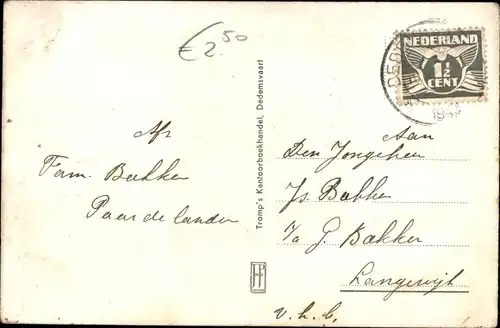 €2.50
NEDERLAND
1½
CENT
DED
Afz
Fam. Bakker
Paardelanden
Tromp's Kantoorboekhandel, Dedemsvaart
Aan
Den Jongeheer
Js. Bakker
p/a G. Bakker
Langewijk
v.h.b.